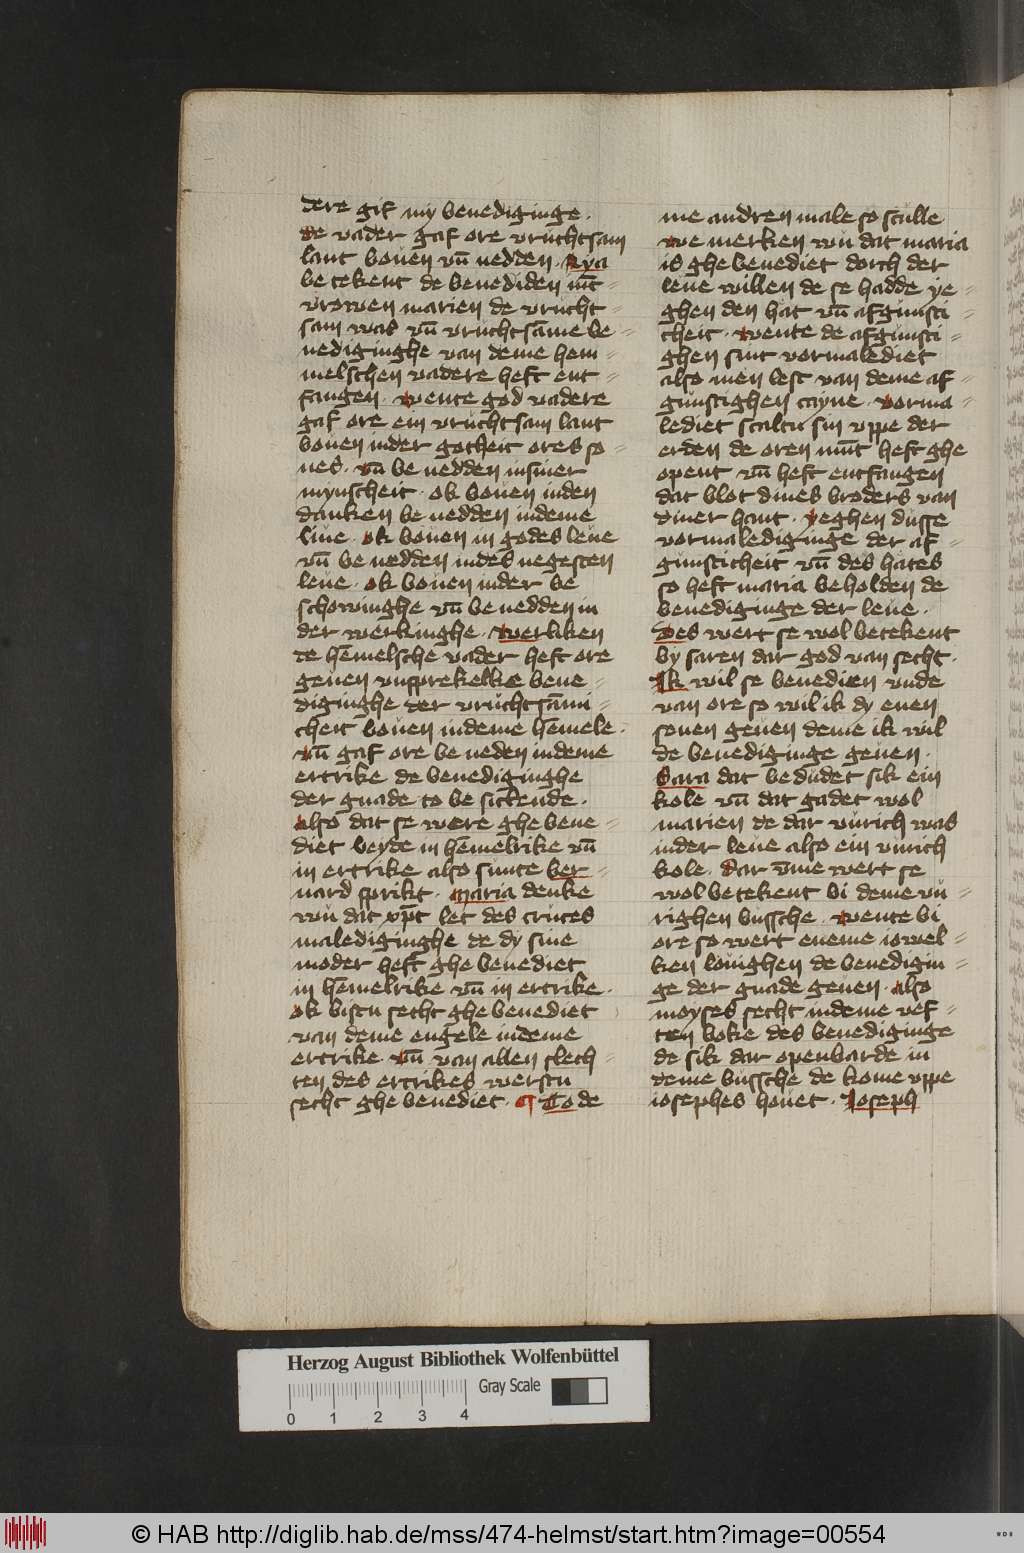 dere gif my benediginge.
De vader gaf ore vruchtsam
lant bouen vn̄ nedden. Axa
betekent de benediden iūc=
vrowen marien de vrucht=
sam was vn̄ vruchtsāme be=
nediginghe van deme hem=
melschen vadere heft ent=
fangen. Wente god vadere
gaf ore ein vruchtsam lant
bouen inder gotheit ores so=
nes. vn̄ be nedden insiner
mynscheit. ok bouen inden
danken be nedden indeme
liue. ok bouen in godes leue
vn̄ be nedden indes negesten
leue. ok bouen inder be
schowinghe vn̄ be nedden in
der werkinghe. Werliken
de hēmelsche vader heft ore
geuen vnsprekelke bene=
diginghe der vruchtsāmi=
cheit bouen indeme hēmele.
vn̄ gaf ore be neden indeme
ertrike de benediginghe
der gnade to be sittende.
Also dat se were ghe bene=
diet beyde in hēmelrike vn̄
in ertrike also sunte ber=
nard sprikt. Maria denke
wu dat xp̄c let des cruces
malediginghe de dy sine
moder heft ghe benediet
in hēmelrike vn̄ in ertrike.
ok bistu secht ghe benediet
van deme engele indeme
ertrike vn̄ van allen slech=
ten des ertrikes werstu
secht ghe benediet. ¶ To de
me andren male so sculle
we merken wu dat maria
is ghe benediet dorch der
leue willen de se hadde ye=
ghen den hat vn̄ afgunsti=
cheit. Wente de afgunsti=
ghen sint vormalediet
also men lest van deme af=
gunstighen cayne. vorma=
lediet scaltu sin vppe der
erden de oren mūt heft ghe
opent vn̄ heft entfangen
dat blot dines broders van
diner hant. yeghen dusse
vormalediginge der af=
gunsticheit vn̄ des hates
so heft maria beholden de
benediginge der leue.
Des wert se wol betekent
by saren dar god van secht.
Ik wil se benedien vnde
van ore so wil ik dy enen
sonen geuen deme ik wil
de benediginge geuen.
Sara dat bedudet sik ein
kole vn̄ dat gadet wol
marien de dar vurich was
inder leue also ein vurich
kole. Dar v̄me wert se
wol betekent bi deme vu=
righen bussche. Wente bi
ore so wert eneme iowel=
ken louighen de benedigin=
ge der gnade geuen. Also
moyses secht indeme vef=
ten boke des benediginge
de sik dar openbarde in
deme bussche de kome vppe
iosephes houet. Ioseph
Herzog August Bibliothek Wolfenbüttel
Gray Scale
0 1 2 3 4
© HAB http://diglib.hab.de/mss/474-helmst/start.htm?image=00554